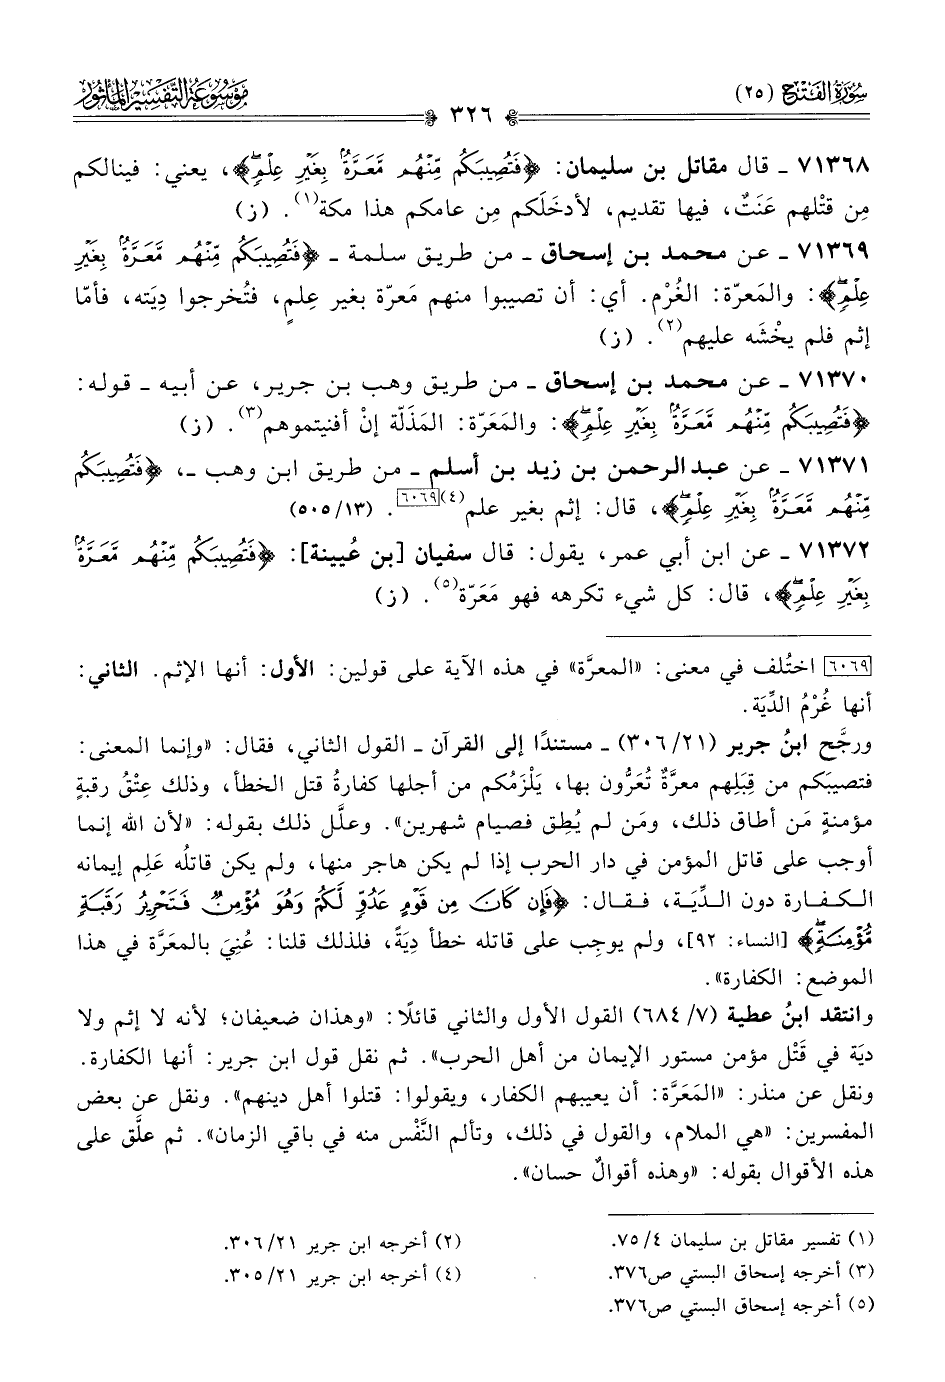 سُورَةُ الفَتْحِ (٢٥)
٣٢٦
مَوْسُوعَةُ التَّفْسِيرِ المَأْثُور
٧١٣٦٨ ـ قال مقاتل بن سليمان: ﴿فَتُصِيبَكُم مِّنْهُم مَّعَرَّةٌۢ بِغَيْرِ عِلْمٍۖ﴾، يعني: فينالكم
مِن قتْلهم عَنَتٌ، فيها تقديم، لأدخلَكم مِن عامكم هذا مكة(١). (ز)
٧١٣٦٩ ـ عن محمد بن إسحاق ـ من طريق سلمة ـ ﴿فَتُصِيبَكُم مِّنْهُم مَّعَرَّةٌۢ بِغَيْرِ
عِلْمٍۖ﴾: والمَعرّة: الغُرْم. أي: أن تصيبوا منهم مَعرّة بغير عِلمٍ، فتُخرجوا دِيَته، فأمّا
إثم فلم يخْشَه عليهم(٢). (ز)
٧١٣٧٠ ـ عن محمد بن إسحاق ـ من طريق وهب بن جرير، عن أبيه ـ قوله:
﴿فَتُصِيبَكُم مِّنْهُم مَّعَرَّةٌۢ بِغَيْرِ عِلْمٍۖ﴾: والمَعَرّة: المَذَلّة إنْ أفنيتموهم(٣). (ز)
٧١٣٧١ ـ عن عبد الرحمن بن زيد بن أسلم ـ من طريق ابن وهب ـ، ﴿فَتُصِيبَكُم
مِّنْهُم مَّعَرَّةٌۢ بِغَيْرِ عِلْمٍۖ﴾، قال: إثم بغير علم(٤)[٦٠٦٩]. (١٣/ ٥٠٥)
٧١٣٧٢ ـ عن ابن أبي عمر، يقول: قال سفيان [بن عُيينة]: ﴿فَتُصِيبَكُم مِّنْهُم مَّعَرَّةٌۢ
بِغَيْرِ عِلْمٍۖ﴾، قال: كل شيء تكرهه فهو مَعَرّة(٥). (ز)
[٦٠٦٩] اختُلف في معنى: «المعرَّة» في هذه الآية على قولين: الأول: أنها الإثم. الثاني:
أنها غُرْمُ الدِّيَة.
ورجَّح ابنُ جرير (٢١/ ٣٠٦) ـ مستندًا إلى القرآن ـ القول الثاني، فقال: «وإنما المعنى:
فتصيبَكم من قِبَلِهم معرَّةٌ تُعَرُّون بها، يَلْزَمُكم من أجلها كفارةُ قتل الخطأ، وذلك عِتْقُ رقبةٍ
مؤمنةٍ مَن أطاق ذلك، ومَن لم يُطِق فصيام شهرين». وعلَّل ذلك بقوله: «لأن الله إنما
أوجب على قاتل المؤمن في دار الحرب إذا لم يكن هاجر منها، ولم يكن قاتلُه عَلِم إيمانه
الكفارة دون الدِّيَة، فقال: ﴿فَإِن كَانَ مِن قَوْمٍ عَدُوٍّ لَّكُمْ وَهُوَ مُؤْمِنٌ فَتَحْرِيرُ رَقَبَةٍ
مُّؤْمِنَةٍۖ﴾ [النساء: ٩٢]، ولم يوجِب على قاتله خطأ دِيَةً، فلذلك قلنا: عُنِيَ بالمعَرَّة في هذا
الموضع: الكفارة».
وانتقد ابنُ عطية (٧/ ٦٨٤) القول الأول والثاني قائلًا: «وهذان ضعيفان؛ لأنه لا إثم ولا
ديَة في قَتْل مؤمن مستور الإيمان من أهل الحرب». ثم نقل قول ابن جرير: أنها الكفارة.
ونقل عن منذر: «المَعَرَّة: أن يعيبهم الكفار، ويقولوا: قتلوا أهل دينهم». ونقل عن بعض
المفسرين: «هي الملام، والقول في ذلك، وتألم النَّفْس منه في باقي الزمان». ثم علَّق على
هذه الأقوال بقوله: «وهذه أقوالٌ حسان».
(١) تفسير مقاتل بن سليمان ٤/ ٧٥.
(٢) أخرجه ابن جرير ٢١/ ٣٠٦.
(٣) أخرجه إسحاق البستي ص٣٧٦.
(٤) أخرجه ابن جرير ٢١/ ٣٠٥.
(٥) أخرجه إسحاق البستي ص٣٧٦.